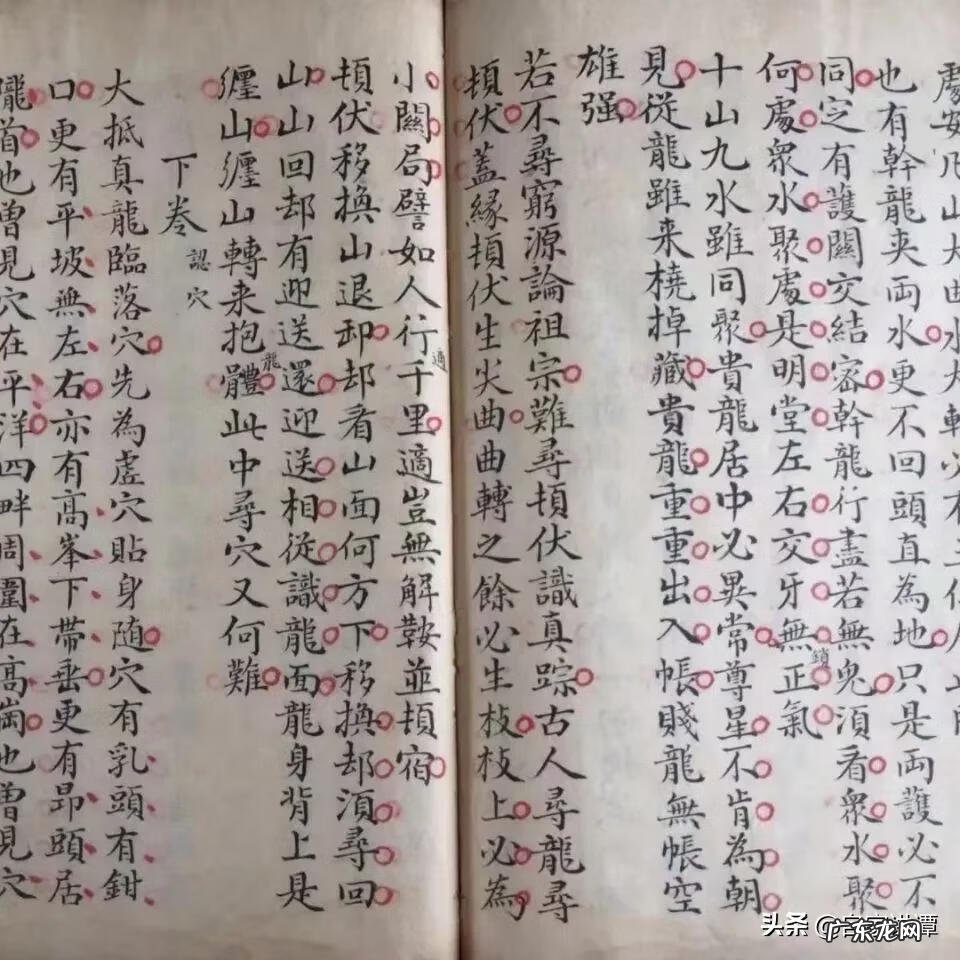 處安凡山大曲水大轉必有
也有幹龍夾両水更不回頭直為地只是両護必不
同定有護關交結宻幹龍行盡若無鬼湏看衆水聚
何處衆水聚處是明堂左右交牙無正氣
鎖
十山九水雖同聚貴龍居中必異常尊星不肯為朝
見従龍雖来橈掉藏貴龍重重出入帳賤龍無帳空
雄强
若不尋窮源論祖宗難尋頓伏識真踪古人尋龍尋
頓伏蓋緣頓伏生尖曲曲轉之餘必生枝枝上必為
小關局譬如人行千里適豈無解鞍並頓宿
適
頓伏移換山退卸却看山面何方下移換却湏尋回
山山回却有迎送還迎送相従識龍面龍身背上是
纒山纒山轉来抱體此中尋穴又何難
龍
下巻 認穴
大抵真龍臨落穴先為虛穴貼身随穴有乳頭有鉗
口更有平坡無左右亦有高峯下帶垂更有昂頭居
隴首也曾見穴在平洋四畔周圍在高崗也曾見穴
头条
广东龙网